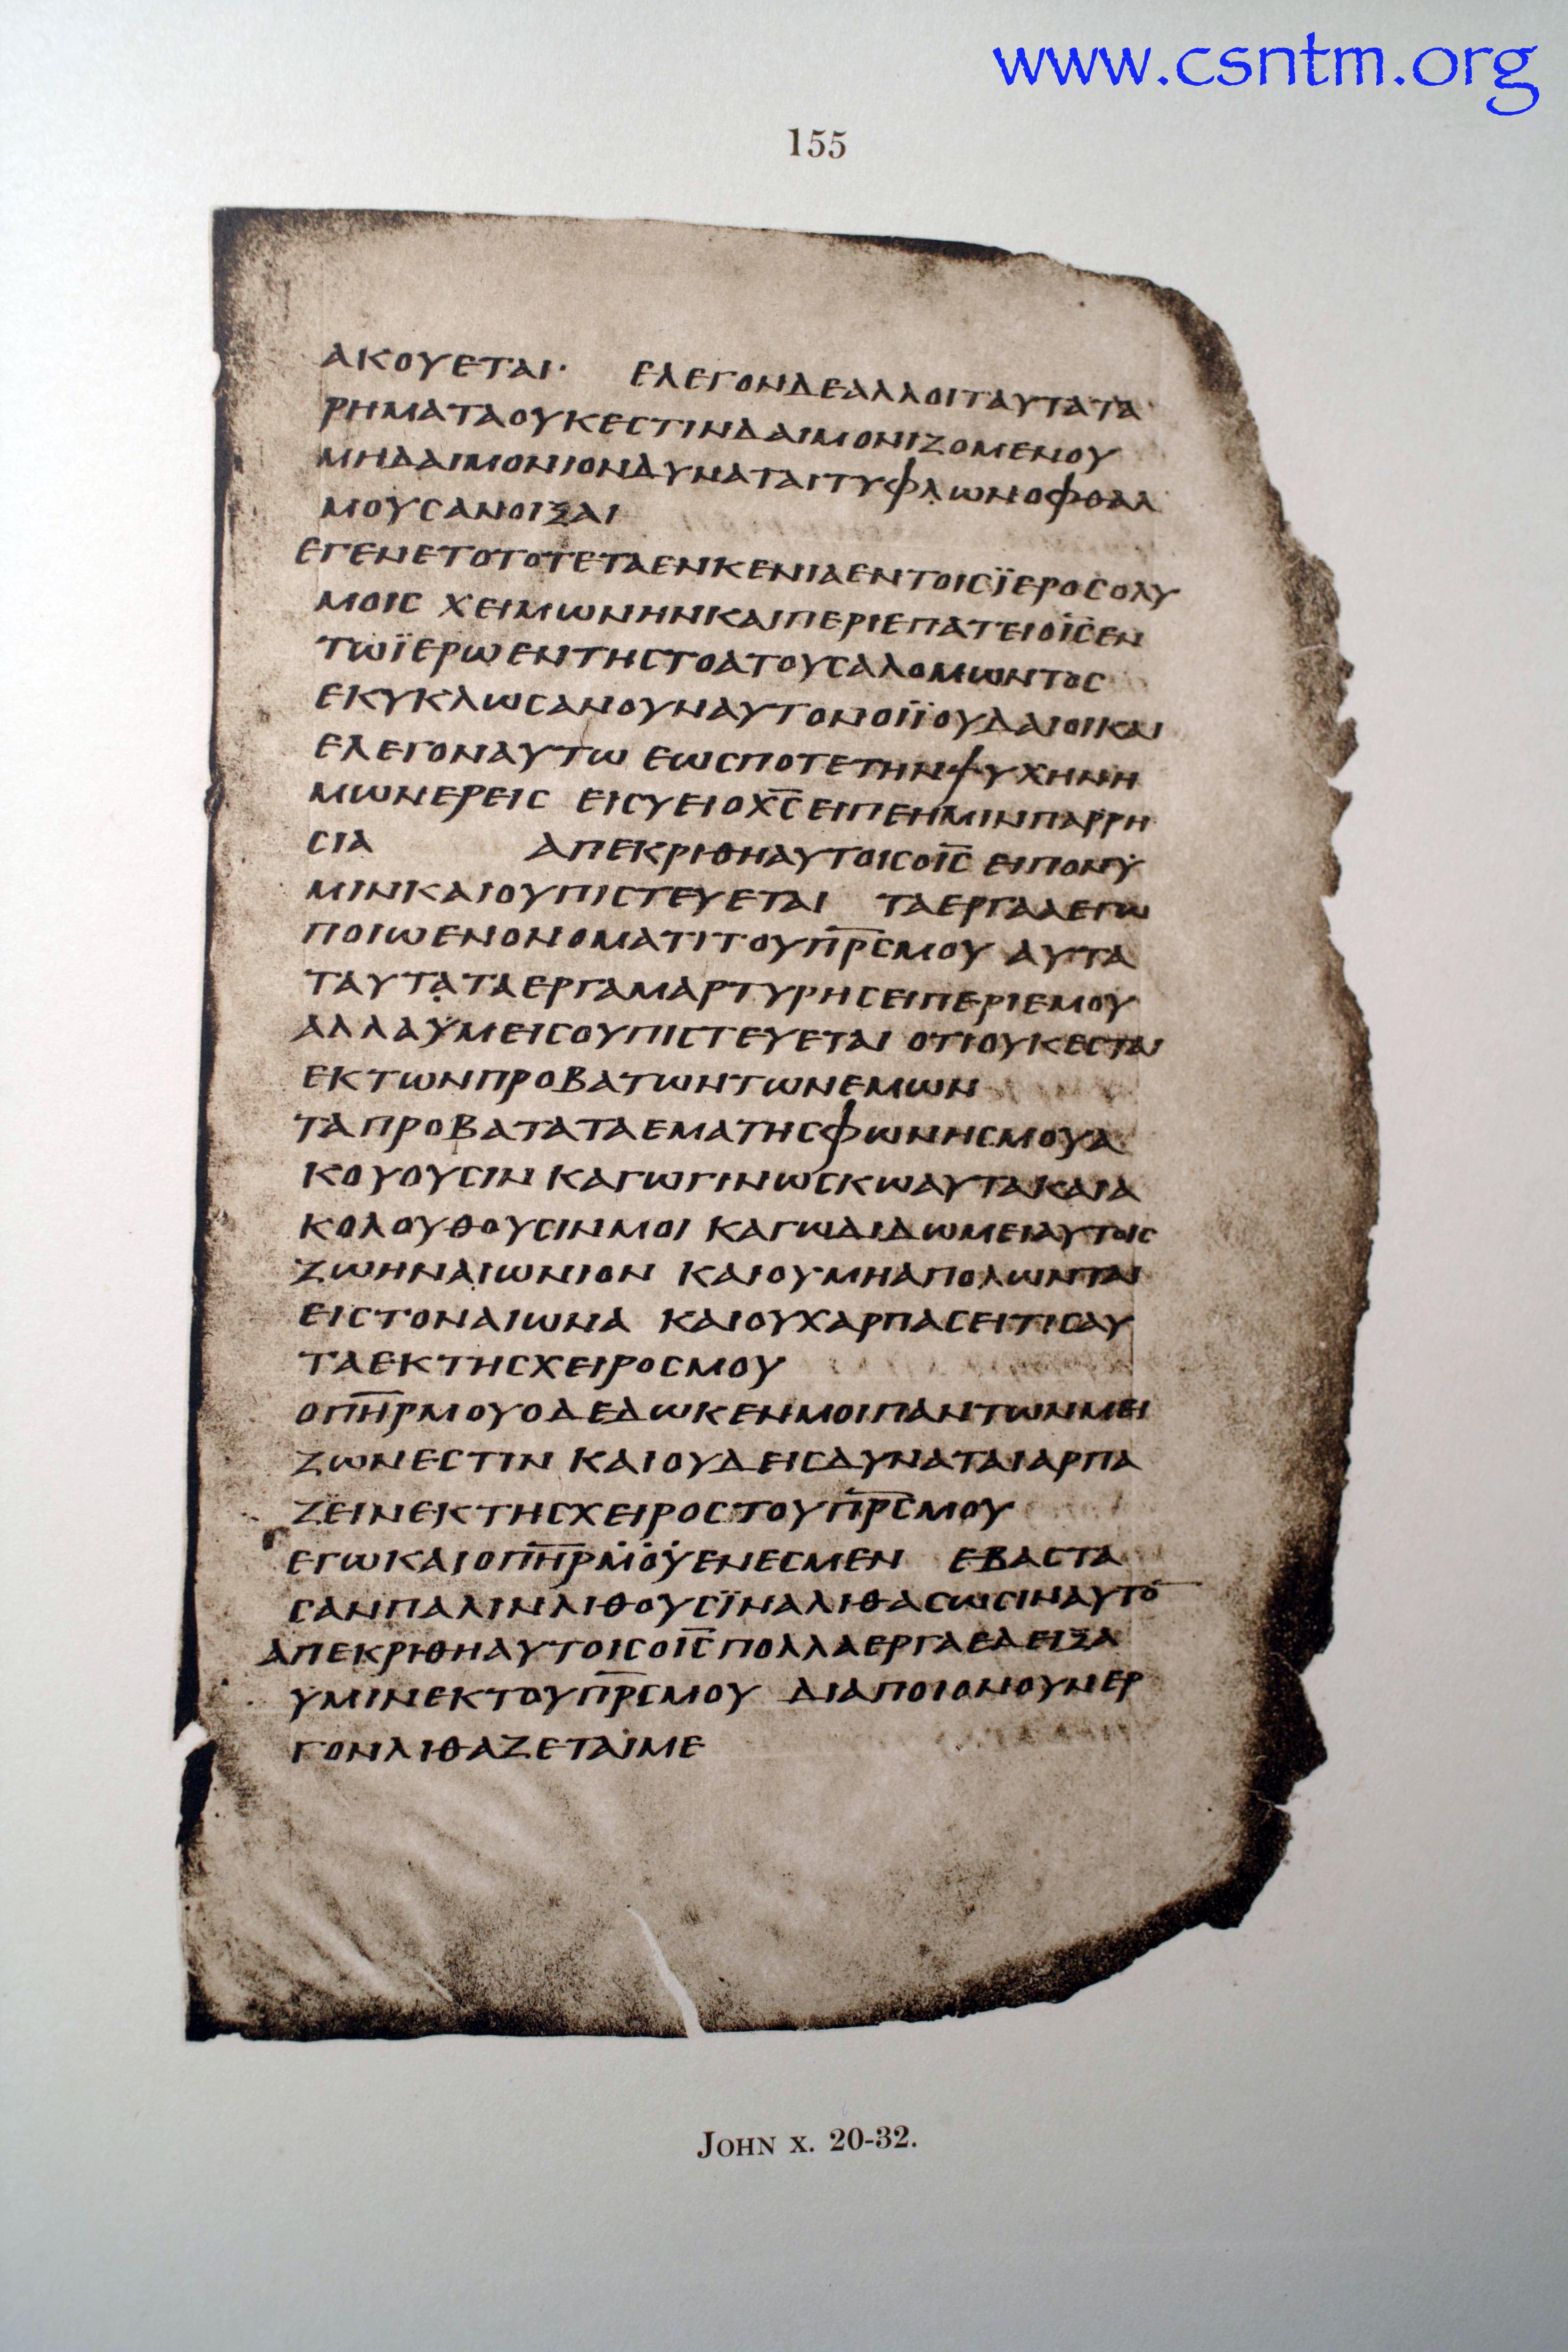 www.csntm.org
155
ΑΚΟΥΕΤΑΙ· ΕΛΕΓΟΝΔΕΑΛΛΟΙΤΑΥΤΑΤΑ
ΡΗΜΑΤΑΟΥΚΕСΤΙΝΔΑΙΜΟΝΙΖΟΜΕΝΟΥ
ΜΗΔΑΙΜΟΝΙΟΝΔΥΝΑΤΑΙΤΥΦΛΩΝΟΦΘΑΛ
ΜΟΥСΑΝΟΙΞΑΙ
ΕΓΕΝΕΤΟΤΟΤΕΤΑΕΝΚΕΝΙΑΕΝΤΟΙСΪΕΡΟСΟΛΥ
ΜΟΙС ΧΕΙΜΩΝΗΝΚΑΙΠΕΡΙΕΠΑΤΕΙΟΙ̅С̅ΕΝ
ΤΩΪΕΡΩΕΝΤΗСΤΟΑΤΟΥСΑΛΟΜΩΝΤΟС
ΕΚΥΚΛΩСΑΝΟΥΝΑΥΤΟΝΟΙΪΟΥΔΑΙΟΙΚΑΙ
ΕΛΕΓΟΝΑΥΤΩ ΕΩСΠΟΤΕΤΗΝΨΥΧΗΝΗ
ΜΩΝΕΡΕΙС ΕΙСΥΕΙΟΧ̅С̅ΕΙΠΕΗΜΙΝΠΑΡΡΗ
СΙΑ ΑΠΕΚΡΙΘΗΑΥΤΟΙСΟΙ̅С̅ ΕΙΠΟΝΫ
ΜΙΝΚΑΙΟΥΠΙСΤΕΥΕΤΑΙ ΤΑΕΡΓΑΑΕΓΩ
ΠΟΙΩΕΝΟΝΟΜΑΤΙΤΟΥΠ̅Ρ̅С̅ΜΟΥ ΑΥΤΑ
ΤΑΥΤΑΤΑΕΡΓΑΜΑΡΤΥΡΗСΕΙΠΕΡΙΕΜΟΥ
ΑΛΛΑΫΜΕΙСΟΥΠΙСΤΕΥΕΤΑΙ ΟΤΙΟΥΚΕСΤΑΙ
ΕΚΤΩΝΠΡΟΒΑΤΩΝΤΩΝΕΜΩΝ
ΤΑΠΡΟΒΑΤΑΤΑΕΜΑΤΗСΦΩΝΗСΜΟΥΑ
ΚΟΥΟΥСΙΝ ΚΑΓΩΓΙΝΩСΚΩΑΥΤΑΚΑΙΑ
ΚΟΛΟΥΘΟΥСΙΝΜΟΙ ΚΑΓΩΔΙΔΩΜΕΙΑΥΤΟΙС
ΖΩΗΝΑΙΩΝΙΟΝ ΚΑΙΟΥΜΗΑΠΟΛΩΝΤΑΙ
ΕΙСΤΟΝΑΙΩΝΑ ΚΑΙΟΥΧΑΡΠΑСΕΙΤΙСΑΥ
ΤΑΕΚΤΗСΧΕΙΡΟСΜΟΥ
ΟΠ̅Η̅Ρ̅ΜΟΥΟΔΕΔΩΚΕΝΜΟΙΠΑΝΤΩΝΜΕΙ
ΖΩΝΕСΤΙΝ ΚΑΙΟΥΔΕΙСΔΥΝΑΤΑΙΑΡΠΑ
ΖΕΙΝΕΚΤΗСΧΕΙΡΟСΤΟΥΠ̅Ρ̅С̅ΜΟΥ
ΕΓΩΚΑΙΟΠ̅Η̅Ρ̅Μ̇Ο̇Υ̇ΕΝΕСΜΕΝ ΕΒΑСΤΑ
СΑΝΠΑΛΙΝΛΙΘΟΥСΪΝΑΛΙΘΑСΩСΙΝΑΥΤΟ̅
ΑΠΕΚΡΙΘΗΑΥΤΟΙСΟΙ̅С̅ΠΟΛΛΑΕΡΓΑΕΔΕΙΞΑ
ΥΜΙΝΕΚΤΟΥΠ̅Ρ̅С̅ΜΟΥ ΔΙΑΠΟΙΟΝΟΥΝΕΡ
ΓΟΝΛΙΘΑΖΕΤΑΙΜΕ
JOHN X. 20-32.